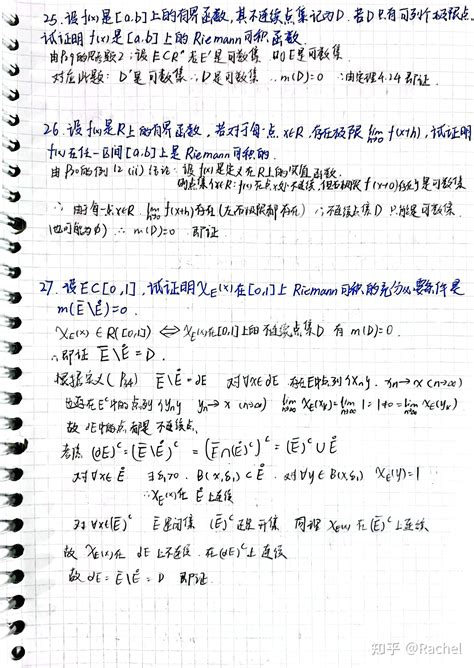 25. 设f(x)是[a.b]上的有界函数,其不连续点集记为D.若D只有可列个极限点.
试证明f(x)是[a.b]上的Riemann可积函数.
由P59的思考题2:设E⊂Rⁿ 若E'是可数集 则E是可数集
对应此题:D'是可数集 ∴D是可数集 ∴m(D)=0 ∴由定理4.24即证.
26. 设f(x)是R上的有界函数,若对于每一点x∈R,存在极限 lim h→0 f(x+h),试证明
f(x)在任一区间[a.b]上是Riemann可积的.
由 的例12(ii)结论:设f(x)是定义在R上的实值函数.
则点集{x∈R:f(x)在点x处不连续,但右极限f(x+0)存在}是可数集
∴由每一点x∈R. lim h→0 f(x+h)存在(左右极限都存在) ∴不连续点集D只能是可数集
(也可能为∅) ∴m(D)=0 即证
27. 设E⊂[0,1],试证明χE(x)在[0,1]上Riemann可积的充分必要条件是
m(Ē\E̊)=0.
χE(x)∈R([0,1]) ⟺ χE(x)在[0,1]上的不连续点集D 有m(D)=0.
∴即证 Ē\E̊=D.
根据定义 Ē\E̊=∂E 对∀x∈∂E 存在E中点列{xn}. xn→x (n→∞)
也存在Eᶜ中的点列{yn} yn→x (n→∞) lim n→∞ χE(xn)=lim n→∞ 1=1≠0=lim n→∞ χE(yn)
故∂E中的点都是不连续点.
考虑 (∂E)ᶜ=(Ē\E̊)ᶜ=(Ē∩(E̊)ᶜ)ᶜ=(Ē)ᶜ∪E̊
对∀x∈E̊ ∃δ1>0. B(x,δ1)⊂E̊. 对∀y∈B(x,δ1) χE(y)=1
∴χE(x)在E̊上连续
对∀x∈(Ē)ᶜ Ē是闭集 (Ē)ᶜ是开集 同理χE(x)在(Ē)ᶜ上连续
故χE(x)在∂E上不连续.在(∂E)ᶜ上连续
故∂E=Ē\E̊=D 即证.
知乎 @Rachel